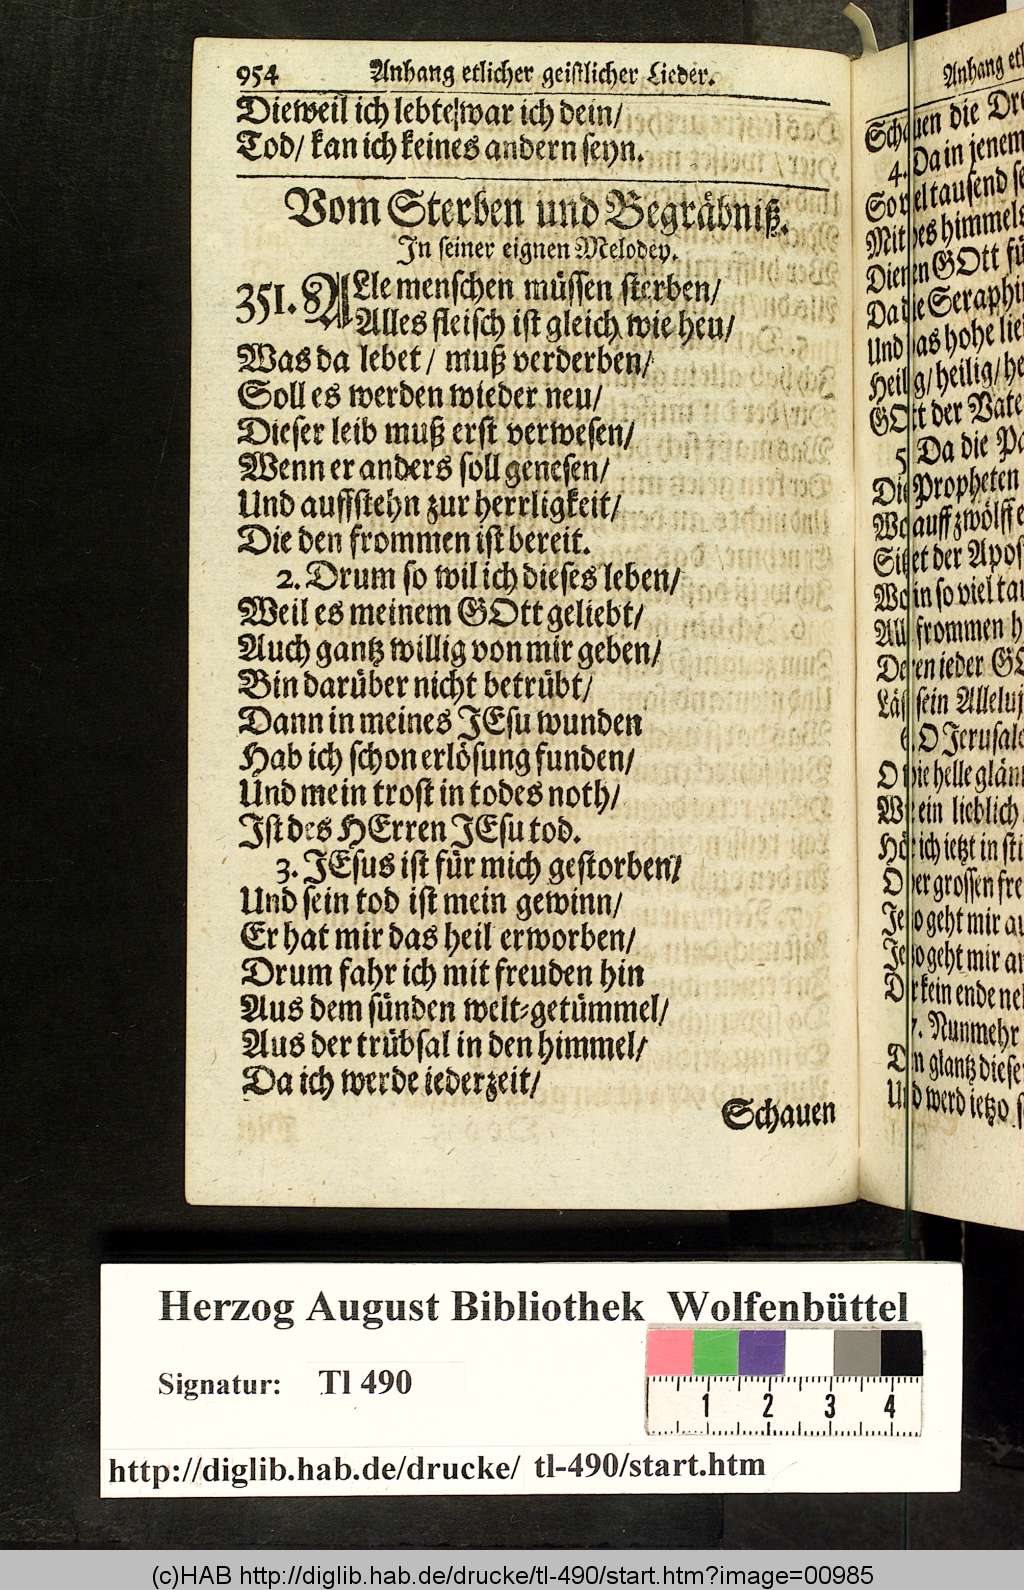 954 Anhang etlicher geistlicher Lieder.
Dieweil ich lebte/war ich dein/
Tod/ kan ich keines andern seyn.
Vom Sterben und Begräbniß.
In seiner eignen Melodey.
351. Alle menschen müssen sterben/
Alles fleisch ist gleich wie heu/
Was da lebet/ muß verderben/
Soll es werden wieder neu/
Dieser leib muß erst verwesen/
Wenn er anders soll genesen/
Und auffstehn zur herrligkeit/
Die den frommen ist bereit.
2. Drum so wil ich dieses leben/
Weil es meinem GOtt geliebt/
Auch gantz willig von mir geben/
Bin darüber nicht betrübt/
Dann in meines JEsu wunden
Hab ich schon erlösung funden/
Und mein trost in todes noth/
Ist des HErren JEsu tod.
3. JEsus ist für mich gestorben/
Und sein tod ist mein gewinn/
Er hat mir das heil erworben/
Drum fahr ich mit freuden hin
Aus dem sünden welt-getümmel/
Aus der trübsal in den himmel/
Da ich werde iederzeit/
Schauen
Anhang
Schauen die
4. Da in jenem
So viel tausend
Mit des himmels
Dienen GOtt
Da die Seraphi
Und das hohe
Heilig/ heilig/
GOtt der
5. Da die
Die Propheten
Wo auff zwölff
Sitzet der
Wo in so viel
Alle frommen
Deren ieder
Läst sein
6. O
O wie helle
Wie ein lieblich
Hör ich ietzt in
O der grossen
Jetzo geht mir
Jetzo geht mir
Der kein ende
7. Nunmehr
Den glantz
Und werd ietzo
Herzog August Bibliothek Wolfenbüttel
Signatur: Tl 490
1 2 3 4
http://diglib.hab.de/drucke/ tl-490/start.htm
(c)HAB http://diglib.hab.de/drucke/tl-490/start.htm?image=00985